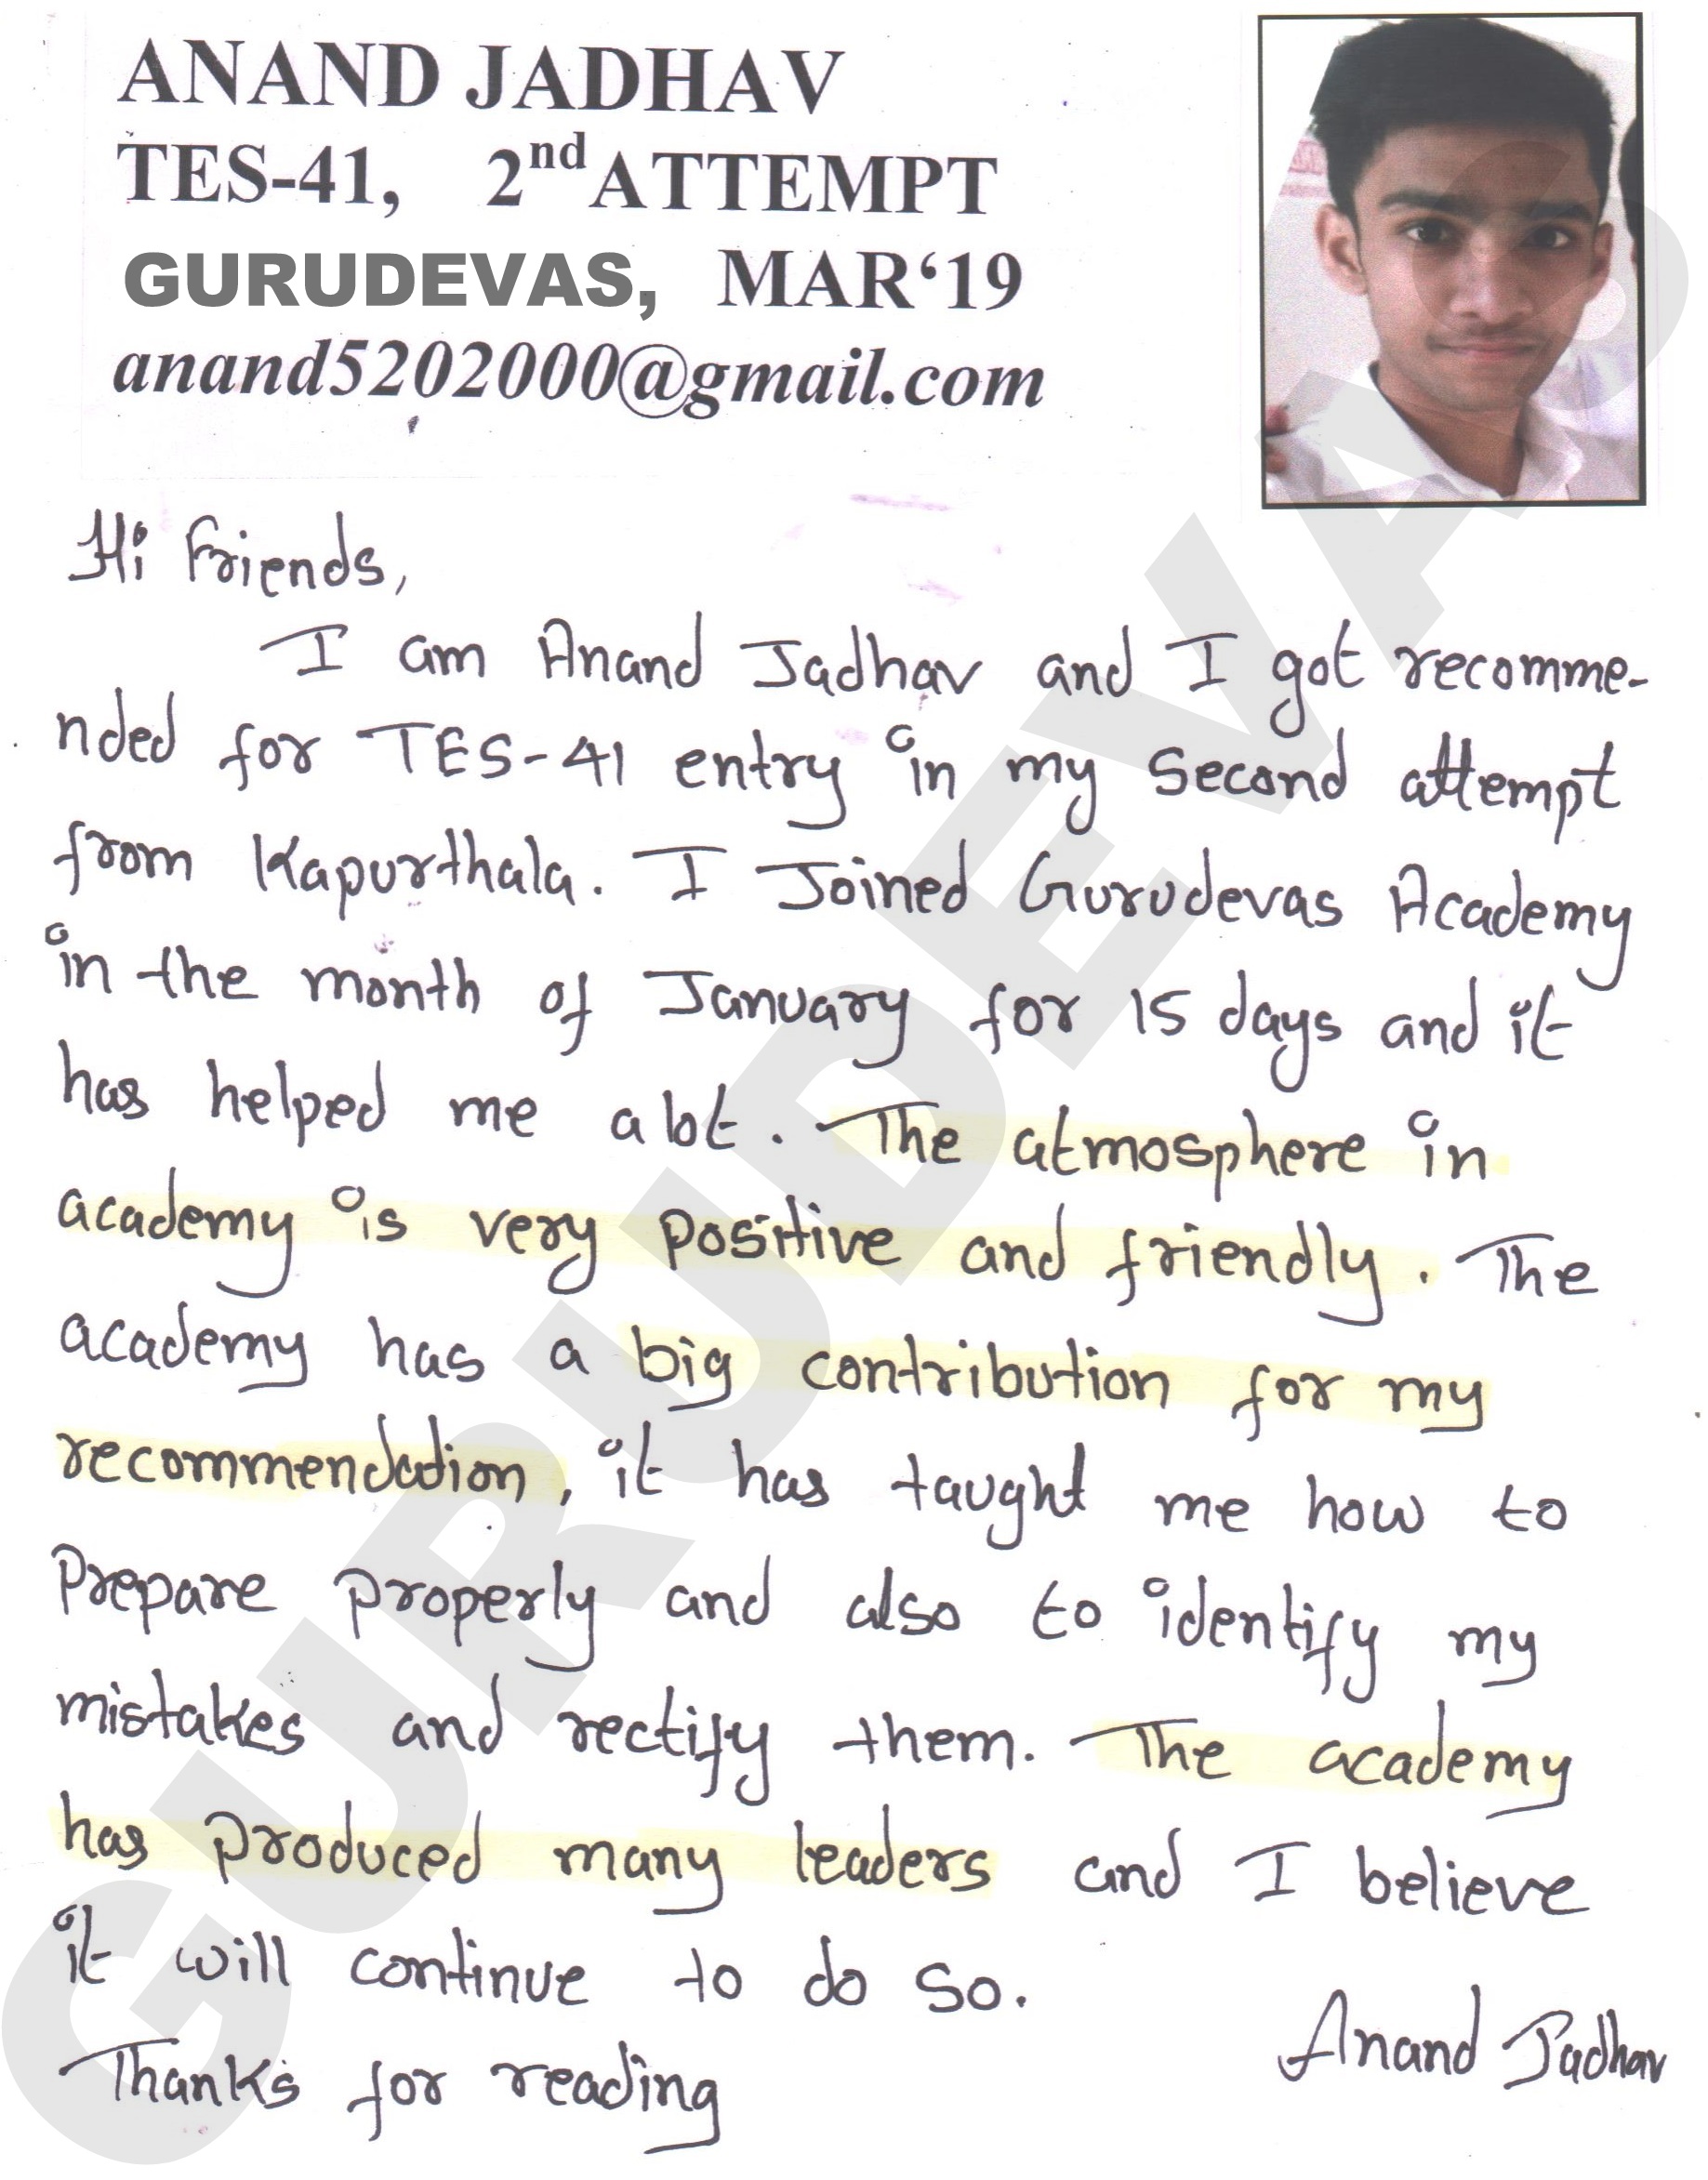 ANAND JADHAV
TES-41, 2nd ATTEMPT
GURUDEVAS, MAR‘19
anand5202000@gmail.com
Hi Friends,
I am Anand Jadhav and I got recomme-
nded for TES-41 entry in my second attempt
from Kapurthala. I Joined Gurudevas Academy
in the month of January for 15 days and it
has helped me a lot. The atmosphere in
academy is very positive and friendly. The
academy has a big contribution for my
recommendation, it has taught me how to
Prepare properly and also to identify my
mistakes and rectify them. The academy
has produced many leaders and I believe
it will continue to do so.
Thanks for reading
Anand Jadhav
GURUDEVAS